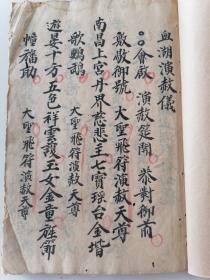 血湖演赦儀
會啟 演赦筵開 恭對御前
敷敭御號 大聖飛符演赦天尊
南昌上宮丹界慈悲主七寶瑶台金堦
歌鸚鵡 大聖飛符演赦天尊
遊宴十方五色祥雲護玉女金童旌節
幢福助 大聖飛符演赦天尊